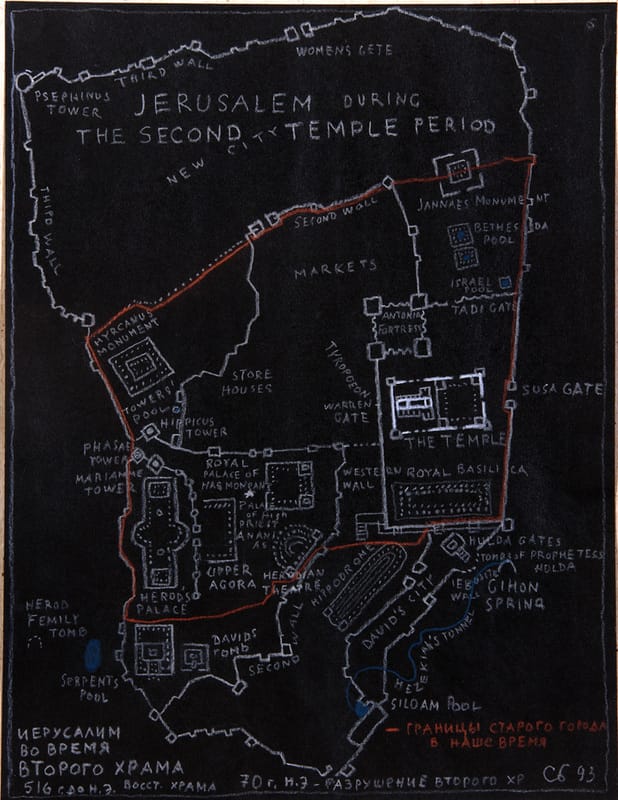 WOMEN'S GATE
THIRD WALL
PSEPHINUS
TOWER
JERUSALEM DURING
THE SECOND TEMPLE PERIOD
NEW CITY
THIRD WALL
SECOND WALL
JANNAES MONUMENT
BETHESDA
POOL
MARKETS
ISRAEL
POOL
TADI GATE
ANTONIA
FORTRESS
HYRCANUS
MONUMENT
TYROPOEON
STORE
HOUSES
TOWERS'
POOL
WARREN
GATE
SUSA GATE
HIPPICUS
TOWER
THE TEMPLE
PHASAEL
TOWER
MARIAMNE
TOWER
ROYAL
PALACE OF
HASMONEANS
WESTERN
WALL
ROYAL BASILICA
PALACE
OF HIGH
PRIEST
ANANI
AS
UPPER
AGORA
HERODIAN
THEATRE
HULDA GATES
TOMBS OF PROPHETESS
HULDA
HIPPODROME
WALL
GIHON
SPRING
HERODS
PALACE
HEROD
FEMILY
TOMB
DAVIDS
TOMB
SECOND
WALL
DAVID'S CITY
HEZEKIAH'S TUNNEL
SERPENTS
POOL
SILOAM POOL
— ГРАНИЦЫ СТАРОГО ГОРОДА
В НАШЕ ВРЕМЯ
ИЕРУСАЛИМ
ВО ВРЕМЯ
ВТОРОГО ХРАМА
516 г. до н.э. ВОССТ. ХРАМА
70 г. н.э. - РАЗРУШЕНИЕ ВТОРОГО ХР
СБ 93